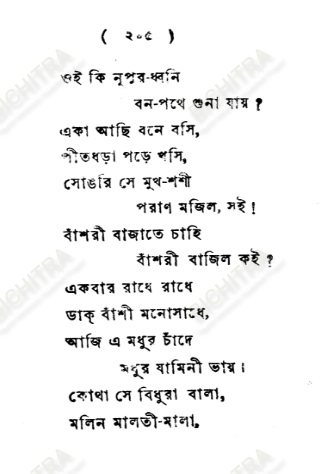 ( ২০৫ )
ওই কি নূপুর-ধ্বনি
বন-পথে শুনা যায় ?
একা আছি বনে বসি,
পীতধড়া পড়ে খসি,
সোঙরি সে মুখ-শশী
পরাণ মজিল, সই !
বাঁশরী বাজাতে চাহি
বাঁশরী বাজিল কই ?
একবার রাধে রাধে
ডাক্ বাঁশী মনোসাধে,
আজি এ মধুর চাঁদে
মধুর যামিনী ভায়।
কোথা সে বিধুরা বালা,
মলিন মালতী-মালা,
BICHITRA